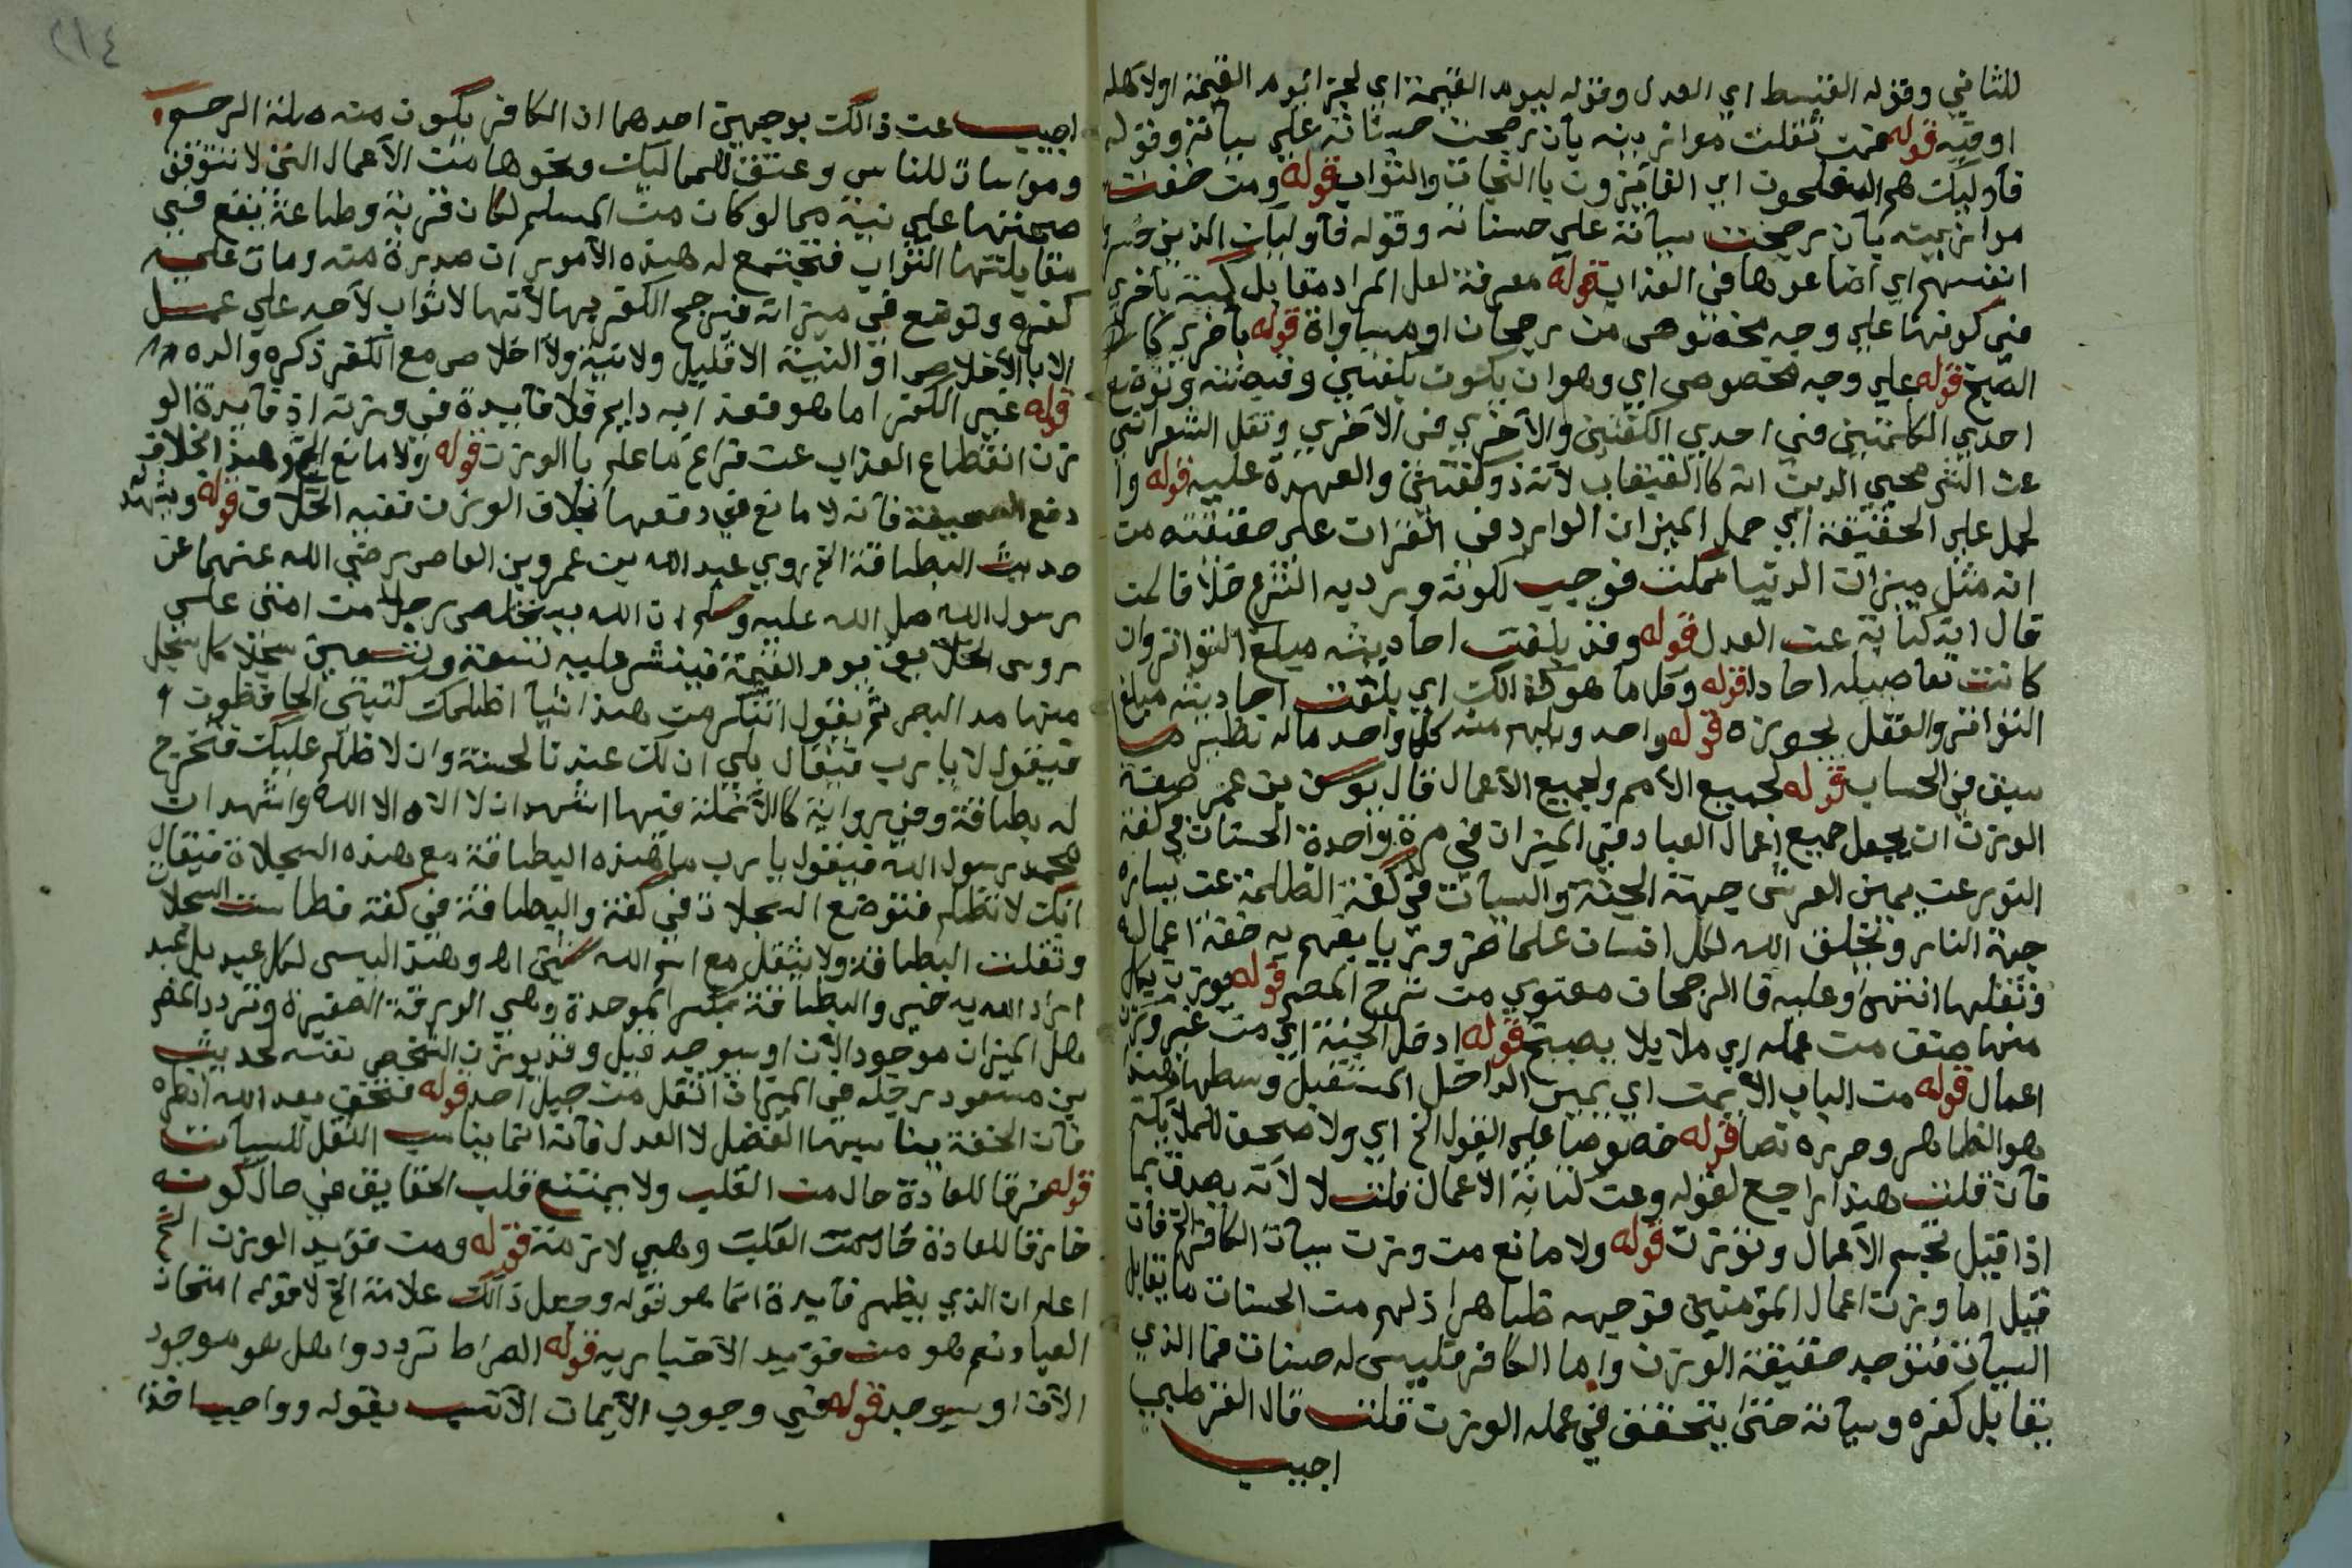 للثاني وقوله القسط اي العدل وقوله ليوم القيمة اي لجزا يوم القيمة اولاهله
او فيه قوله فمن ثقلت موازينه بان رجحت حسناته علي سياته وقوله
فاوليك هم المفلحون اي الفايزون بالنجات والثواب قوله ومن خفت
موازينه بان رجحت سياته علي حسناته وقوله فاوليك الذين خسروا
انفسهم اي اضاعوها في العذاب قوله معرفة لعل المراد مقابل كمية باخري
في كونها علي وجه مخصوص من رجحان او مساواة قوله باخري كالا
الصبخ قوله علي وجه مخصوص اي وهو ان يكون بكفتين وقبضته وتوضع
احدي الكاينتين في احدي الكفتين والاخري في الاخري ونقل الشعراني
عن الشيخ محيي الدين انه كالقبقاب لانه ذو كفتين والعهدة عليه قوله وا
لحمل علي الحقيقة اي حمل الميزان الوارد في القران علي حقيقته من
انه مثل ميزان الدنيا ممكن فوجب لكونه ورد به الشرع خلافا لمن
قال انه كناية عن العدل قوله وقد بلغت احاديثه مبلغ التواتر وان
كانت تفاصيله احادا قوله وكل ما هو كذالك اي بلغت احاديثه مبلغ
التواتر والعقل يجوزه قوله واحد ولهم منه كل واحد ماله نظير ما
سبق في الحساب قوله لجميع الامم ولجميع الاعمال قال يوسف بن عمر صفة
الوزن ان يجعل جميع اعمال العباد في الميزان في مرة واحدة الحسنات في كفة
النور عن يمين العرش جهة الجنة والسيات في كفة الظلمة عن يساره
جهة النار ويخلق الله لكل انسان علما ضروريا يفهم به خفة اعماله
وثقلها انتهي وعليه فالرجحان معنوي من شرح المصر قوله
منها صنف من عمله اي ملا يلا بصبخ قوله ادخل الجنة اي من غير وزن
اعمال قوله من الباب الايمن اي يمين الداخل المستقبل وسطها وهذا
هو الظاهر وحرره نصا قوله خصوصا علي القول الخ اي ولا صحف للملايكة
فان قلت هذا راجع لقوله وعن كتابة الاعمال قلت لا لانه يصدق بما
اذا قيل تجسم الاعمال وتوزن قوله ولا مانع من وزن سيات الكافر الخ فان
قيل اما وزن اعمال المومنين فوجهه ظاهر اذ لهم من الحسنات ما يقابل
السيات فتوجد حقيقة الوزن واما الكافر فليس له حسنات فما الذي
يقابل كفره وسياته حتي يتحقق في عمله الوزن قلت قال القرطبي
اجيب
اجيب عن ذالك بوجهين احدهما ان الكافر يكون منه صلة الرحم
ومواسات للناس وعتق للمماليك ونحوها من الاعمال التي لا تتوقف
صحتها علي نية مما لو كان من المسلم لكان قربة وطاعة ينفع في
مقابلتها الثواب فتجتمع له هذه الامور ان صدرة منه ومات علي
كفره وتوضع في ميزانه فيرجح الكفر بها لانها لا ثواب لاحد علي عمل
الا بالاخلاص او النية الا قليل ولا نية ولا اخلاص مع الكفر ذكره والده اه
قوله غير الكفر اما هو فعذابه دايم فلا فايدة في وزنه اذ فايدة الو
زن انقطاع العذاب عن فراغ ما علم بالوزن قوله ولا مانع الخ وهذا بخلاف
دفع الصحيفة فانه لا مانع في دفعها بخلاف الوزن ففيه الخلاف قوله ويشهد
حديث البطاقة الخ روي عبد الله بن عمرو بن العاص رضي الله عنهما عن
رسول الله صلى الله عليه وسلم ان الله سيخلص رجلا من امتي علي
روس الخلايق يوم القيمة فينشر عليه تسعة وتسعين سجلا كل سجل
منها مد البصر ثم يقول اتنكر من هذا شيا اظلمك كتبتي الحافظون
فيقول لا يا رب فيقال بلي ان لك عندنا لحسنة وان لا ظلم عليك فتخرج
له بطاقة وفي رواية كالانملة فيها اشهد ان لا اله الا الله واشهد ان
محمد رسول الله فيقول يا رب ما هذه البطاقة مع هذه السجلاة فيقال
انك لا تظلم فتوضع السجلات في كفة والبطاقة في كفة فطاشت السجلا
وثقلت البطاقة ولا يثقل مع اسم الله شي اه وهذا ليس لكل عبد بل لعبد
اراد الله به خير والبطاقة بكسر الموحدة وهي الورقة الصغيرة وتردد المصر
هل الميزان موجود الان او سيوجد قيل وقد يوزن الشخص نفسه لحديث
بن مسعود رجله في الميزان اثقل من جبل احد قوله فتخف بعد الله انظره
فان الخفة يناسبها الفضل لا العدل فانه انما يناسب الثقل للسيات
قوله خرقا للعادة حال من القلب ولا يمتنع قلب الحقايق في حال كونه
خارقا للعادة حال من القلب وهي لازمة قوله ومن فوايد الوزن الخ
اعلم ان الذي يظهر فايدة انما هو قوله وجعل ذالك علامة الخ لا قوله امتحان
العباد نعم هو من فوايد الاخبار به قوله الصراط ترددوا هل هو موجود
الان او سيوجد قوله في وجوب الايمان الانسب بقوله وواجب اخذا